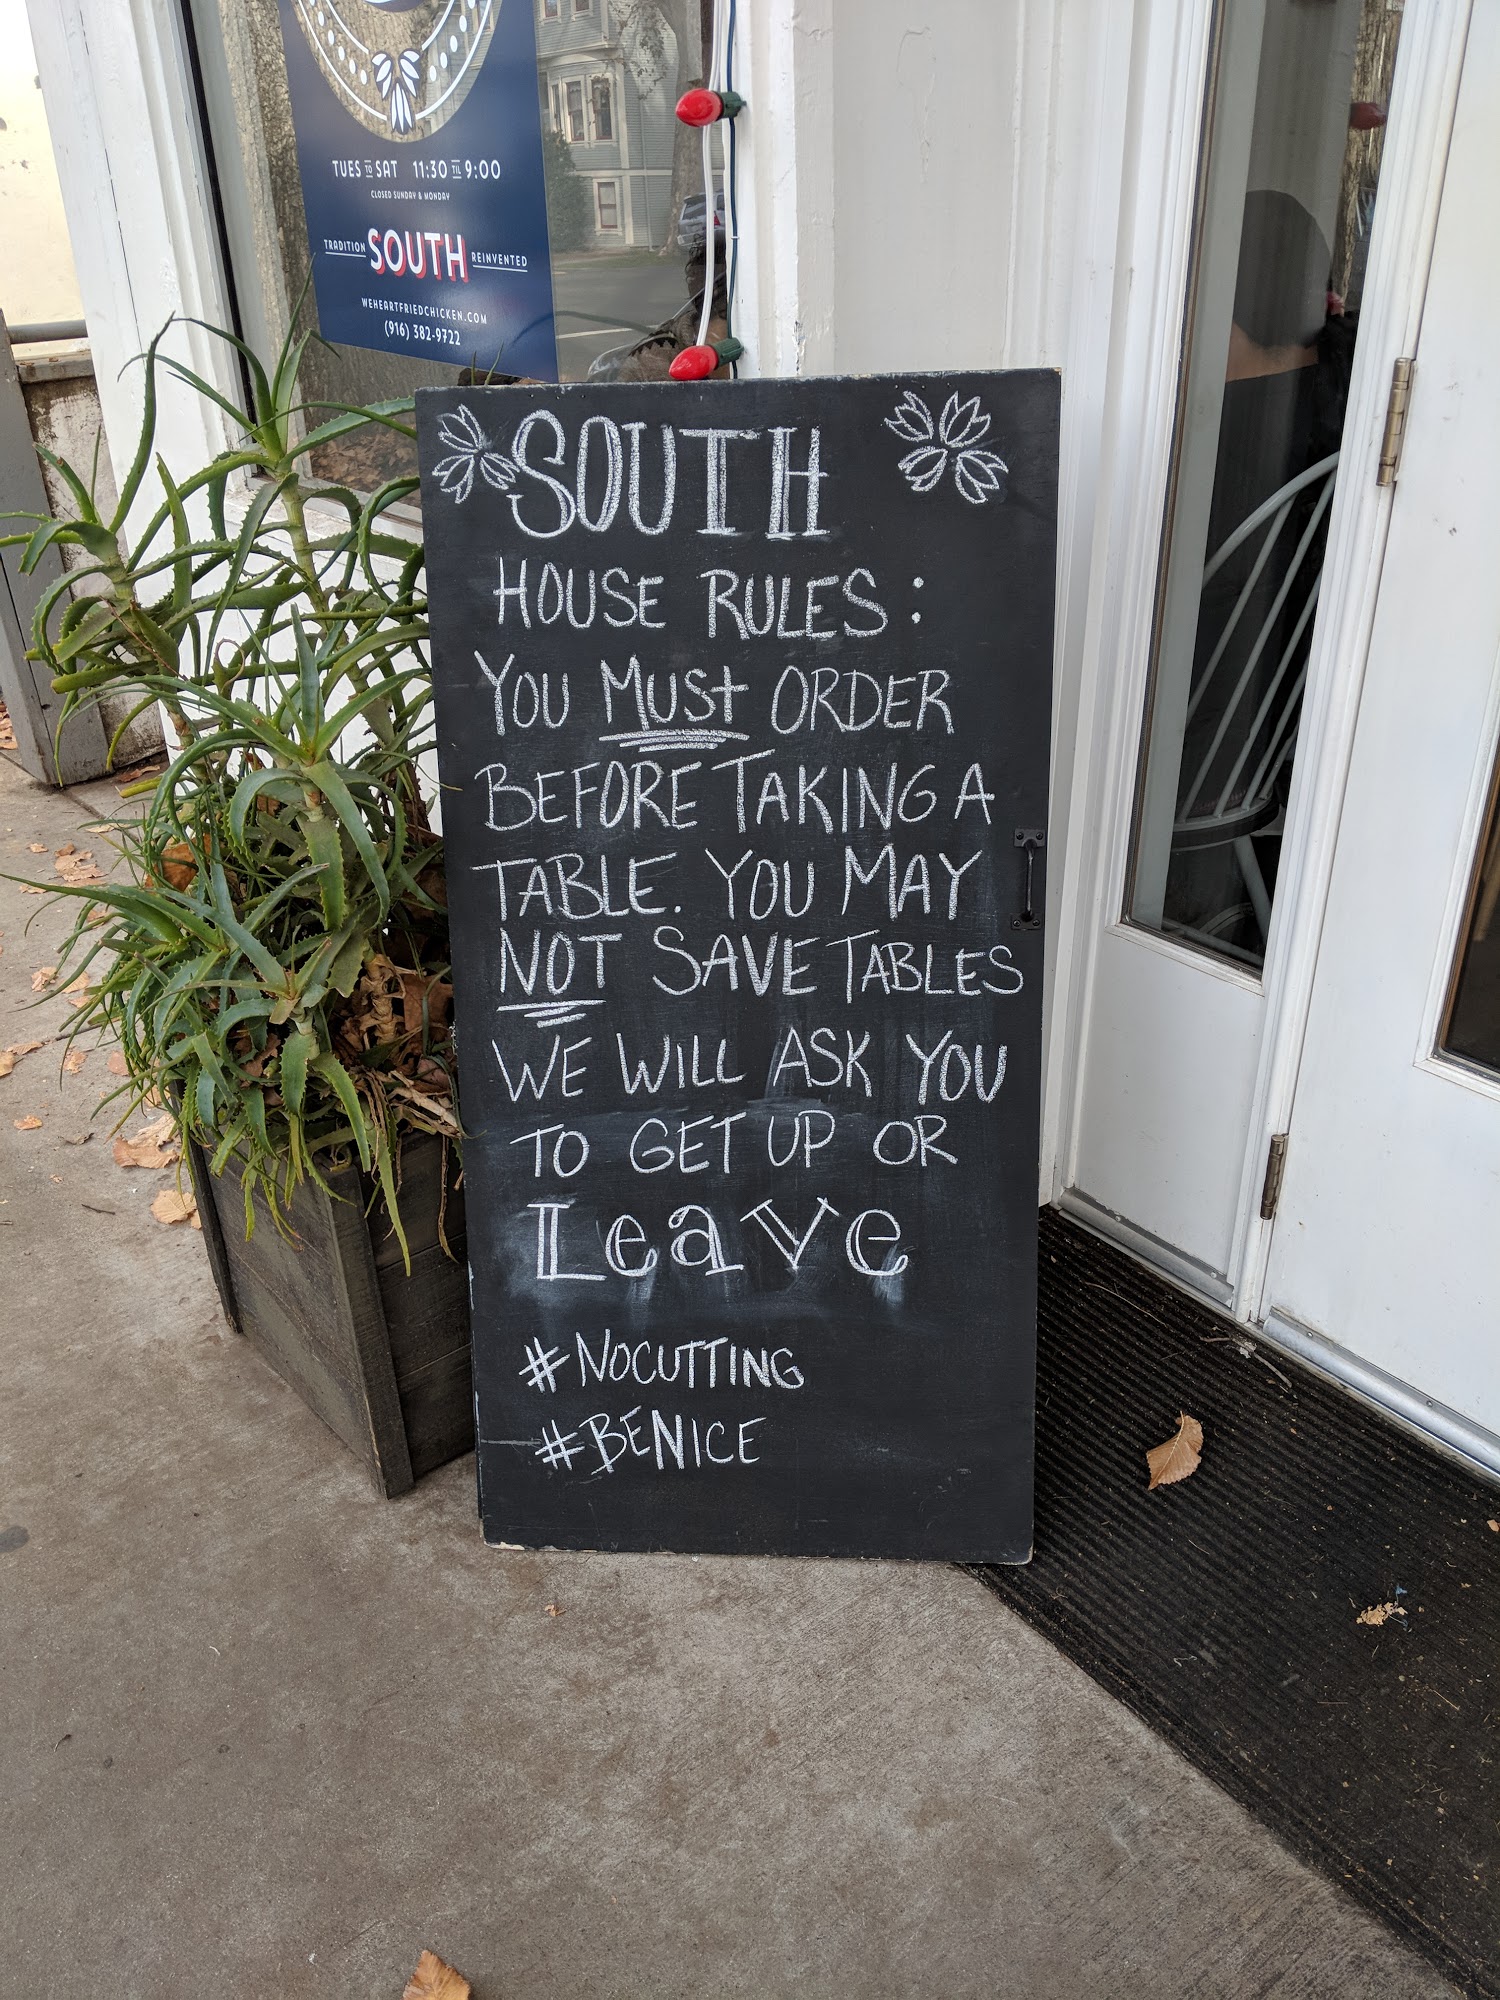 TUES TO SAT 11:30 TIL 9:00
CLOSED SUNDAY & MONDAY
TRADITION SOUTH REINVENTED
WEHEARTFRIEDCHICKEN.COM
(916) 382-9722
SOUTH
HOUSE RULES:
YOU MUST ORDER
BEFORE TAKING A
TABLE. YOU MAY
NOT SAVE TABLES
WE WILL ASK YOU
TO GET UP OR
Leave
#NOCUTTING
#BENICE